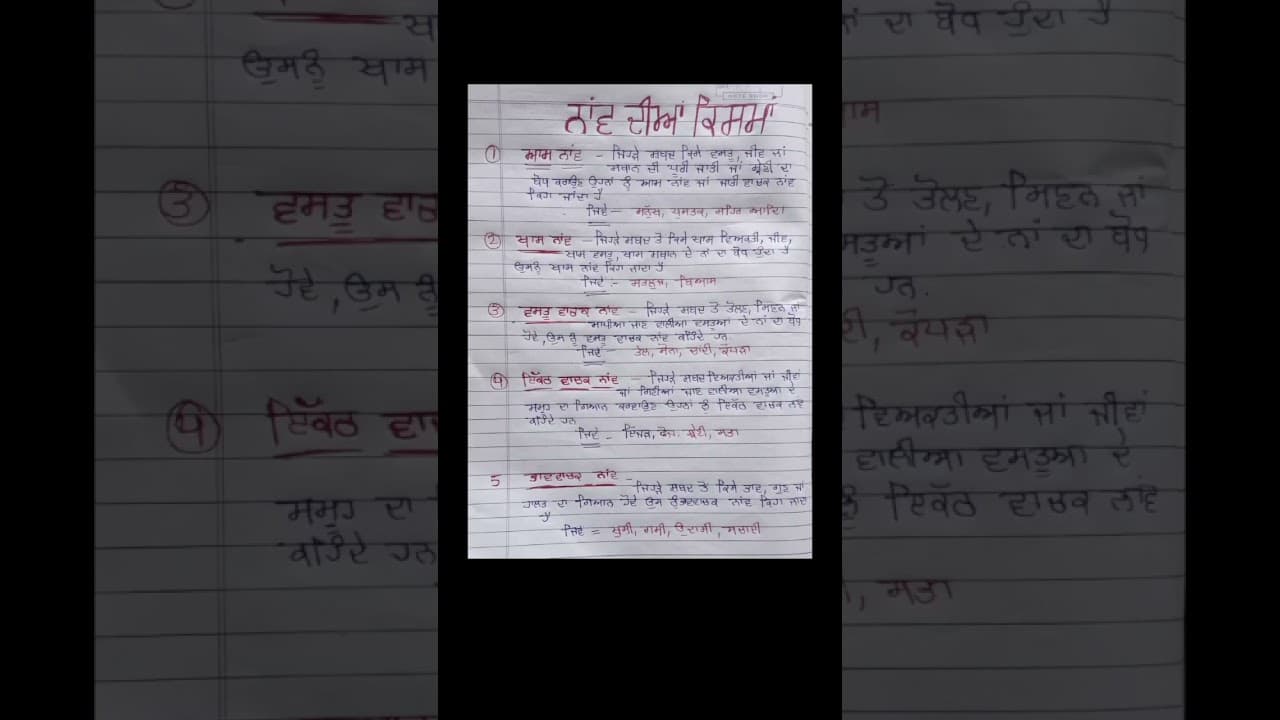 ਨਾਂਵ ਦੀਆਂ ਕਿਸਮਾਂ
① ਆਮ ਨਾਂਵ - ਜਿਹੜੇ ਸ਼ਬਦ ਕਿਸੇ ਵਸਤੂ, ਜੀਵ ਜਾਂ
ਸਥਾਨ ਦੀ ਪੂਰੀ ਜਾਤੀ ਜਾਂ ਸ਼੍ਰੇਣੀ ਦਾ
ਬੋਧ ਕਰਾਉਣ ਉਹਨਾਂ ਨੂੰ ਆਮ ਨਾਂਵ ਜਾਂ ਜਾਤੀ ਵਾਚਕ ਨਾਂਵ
ਕਿਹਾ ਜਾਂਦਾ ਹੈ
ਜਿਵੇਂ - ਮਨੁੱਖ, ਪੁਸਤਕ, ਸ਼ਹਿਰ ਆਦਿ।
② ਖਾਸ ਨਾਂਵ - ਜਿਹੜੇ ਸ਼ਬਦ ਤੋਂ ਕਿਸੇ ਖਾਸ ਵਿਅਕਤੀ, ਜੀਵ,
ਖਾਸ ਵਸਤੂ, ਖਾਸ ਸਥਾਨ ਦੇ ਨਾਂ ਦਾ ਬੋਧ ਹੁੰਦਾ ਹੈ
ਉਸਨੂੰ ਖਾਸ ਨਾਂਵ ਕਿਹਾ ਜਾਂਦਾ ਹੈ
ਜਿਵੇਂ :- ਸਤਲੁਜ, ਬਿਆਸ
③ ਵਸਤੂ ਵਾਚਕ ਨਾਂਵ - ਜਿਹੜੇ ਸ਼ਬਦ ਤੋਂ ਤੋਲਣ, ਮਿਣਨ ਜਾਂ
ਮਾਪੀਆਂ ਜਾਣ ਵਾਲੀਆਂ ਵਸਤੂਆਂ ਦੇ ਨਾਂ ਦਾ ਬੋਧ
ਹੋਵੇ, ਉਸ ਨੂੰ ਵਸਤੂ ਵਾਚਕ ਨਾਂਵ ਕਹਿੰਦੇ ਹਨ.
ਜਿਵੇਂ - ਤੇਲ, ਸੋਨਾ, ਚਾਂਦੀ, ਕੱਪੜਾ
④ ਇਕੱਠ ਵਾਚਕ ਨਾਂਵ - ਜਿਹੜੇ ਸ਼ਬਦ ਵਿਅਕਤੀਆਂ ਜਾਂ ਜੀਵਾਂ
ਜਾਂ ਗਿਣੀਆਂ ਜਾਣ ਵਾਲੀਆਂ ਵਸਤੂਆਂ ਦੇ
ਸਮੂਹ ਦਾ ਗਿਆਨ ਕਰਵਾਉਣ ਉਹਨਾਂ ਨੂੰ ਇਕੱਠ ਵਾਚਕ ਨਾਂਵ
ਕਹਿੰਦੇ ਹਨ
ਜਿਵੇਂ - ਇੱਜੜ, ਸ਼੍ਰੇਣੀ, ਸਭਾ
5 ਭਾਵਵਾਚਕ ਨਾਂਵ
- ਜਿਹੜੇ ਸ਼ਬਦ ਤੋਂ ਕਿਸੇ ਭਾਵ, ਗੁਣ ਜਾਂ
ਹਾਲਤ ਦਾ ਗਿਆਨ ਹੋਵੇ ਉਸ ਨੂੰ ਭਾਵਵਾਚਕ ਨਾਂਵ ਕਿਹਾ ਜਾਂਦਾ
ਹੈ
ਜਿਵੇਂ = ਖੁਸ਼ੀ, ਗਮੀ, ਉਦਾਸੀ, ਸਚਾਈ